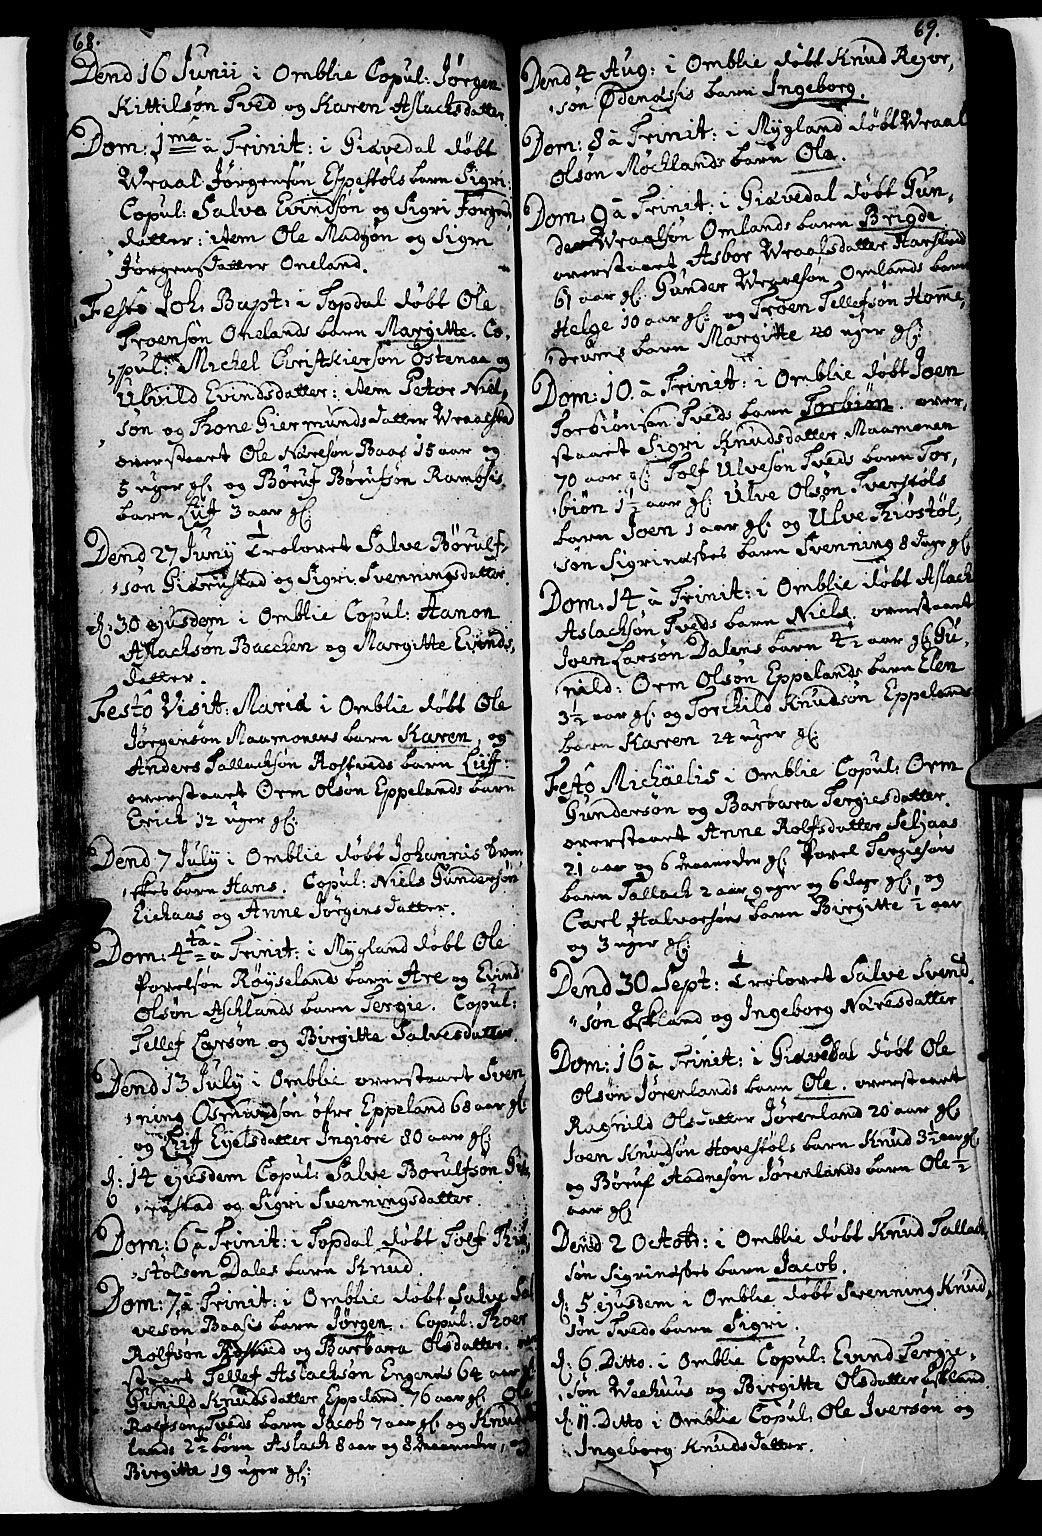 68.
Dend 16 Junii i Omblie Copul: Jørgen
Kittilsøn Tved og Karen Aslachsdatter
Dom: 1ma a Trinit: i Giøvedal døbt
Wraal Jørgensøn Espestøls barn Sigri:
Copul: Salve Evindsøn og Sigri Jørgens
datter: item Ole Madsøn og Sigri
Jørgensdatter Oneland.
Festo Joh. Bapt: i Topdal døbt Ole
Troensøn Onelands barn Margitte. Co-
pul: Michel Christkiersøn Østenaa og
Ubvild Evindsdatter: item Peter Niel,
søn og Thone Giermundsdatter Wraalstad
overstaaet Ole Näresøn Baas 15 aar og
5 uger gl. og Børuf Børufsøn Rambsis
barn Liff 3 aar gl.
Dend 27 Juny Trolovet Salve Børulf-
søn Giøvustad og Sigri Svenningsdatter.
d: 30 ejusdem i Omblie Copul: Aanon
Aslachsøn Bacchen og Margitte Evinds,
datter.
Festo Visit: Mariæ i Omblie døbt Ole
Jørgensøn Maamonens barn Karen, og
Anders Tallachsøn Rostveds barn Liff:
overstaaet Orm Olsøn Eppelands barn
Erich 12 uger gl:
Dend 7 July i Omblie døbt Johannis
barn Hans. Copul: Niels Gundersøn
Eichaas og Anne Jørgensdatter.
Dom: 4ta a Trinit: i Mygland døbt Ole
Povelsøn Røyselands barn Are og Evind
Olsøn Aschlands barn Tergie. Copul:
Tellef Larsøn og Birgitte Salvesdatter
Dend 13 July i Omblie overstaaet Sven
ning Osmundsøn øfre Eppeland 68 aar gl
og Liff Eyelsdatter Ingiore 80 aar gl:
d: 14 ejusdem Copul: Salve Børulfsøn
stad og Sigri Svenningsdatter.
Dom: 6 a Trinit: i Topdal døbt Tolf
stølsen Dales barn Knud.
Dom: 7 a Trinit: i Omblie døbt Salve Sal
vesøn Baasis barn Jørgen. Copul: Thoer
Rolfsøn Rostved og Barbara Olsdatter.
staaet Tellef Aslachsøn Engenes 64 aar
Gunild Knudsdatter Eppeland 76 aar gl. Ole
Rolfsøn Tveds barn Jacob 7 aar gl og Knud
lands 2de børn Aslach 8 aar og 8 maaneder, og
Birgitte 19 uger gl:
69.
Dend 4 Aug: i Omblie døbt Knud Reyer,
søn Ødenæsis barn Ingeborg.
Dom: 8 a Trinit: i Mygland døbt Wraal
Olsøn Mochlands barn Ole.
Dom: 9 a Trinit: i Giøvedal døbt Gun-
der Wraalsøn Omlands barn Brigde
overstaaet Asbor Wraalsdatter Harstved
61 aar gl. Gunder Wraalsøn Omlands barn
Helge 10 aar gl: og Troen Tellefsøn Homme,
drums barn Margitte 20 uger gl:
Dom: 10 a Trinit: i Omblie døbt Joen
Torbiønsøn Tveds barn Torbiøn. over,
staaet Sigri Knudsdatter Maamonen
70 aar gl: Tolf Ulvesøn Tveds barn Tor,
biøn 1½ aar gl: Ulve Olsøn Tverstøls
barn Joen 1 aar gl: og Ulve Kiøstøl,
søn Sigrinæses barn Svenning 8 dage gl:
Dom: 14 a Trinit: i Omblie døbt Aslach
Aslachsøn Tveds barn Niels. overstaaet
Joen Larsøn Dalens barn 4½ aar gl: Gu-
nild: Orm Olsøn Eppelands barn Elen
3½ aar gl: og Torchild Knudsøn Eppelands
barn Karen 24 uger gl:
Festo Michaelis i Omblie Copul: Orm
Gundersøn og Barbara Tergiesdatter.
overstaaet Anne Rolfsdatter Seljaas
21 aar og 6 maaneder gl: Povel Tergiesøns
barn Tallach 2 aar 9 uger og 6 dage gl: og
Carl Halvorsøns barn Birgitte ½ aar
og 3 uger gl:
Dend 30 Sept: Trolovet Salve Svend
søn Eskland og Ingeborg Näresdatter
Dom: 16 a Trinit: i Giøvedal døbt Ole
Olsøn Jørenlands barn Ole. overstaaet
Ragnild Olsdatter Jørenland 20 aar gl:
Joen Knudsøn Hovestøls barn Knud 3½ aar gl:
og Børuf Aadnesøn Jørenlands barn Ole ½
aar gl:
Dend 2 Octob: i Omblie døbt Knud Tallach
søn Sigrinæses barn Jacob.
d: 5 ejusdem i Omblie døbt Svenning Knud,
søn Tveds barn Sigri.
d: 6 Ditto. i Omblie Copul: Evind Tergie-
søn Weehuus og Birgitte Olsdatter Eskland
d: 11. Ditto i Omblie Copul: Ole Iversøn og
Ingeborg Knudsdatter.